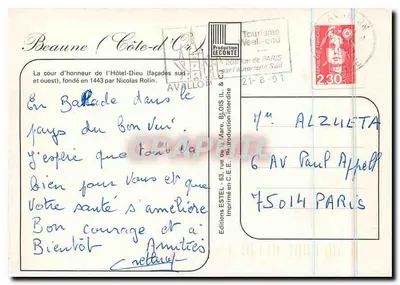 Beaune (Côte-d'Or)
La cour d'honneur de l'Hôtel-Dieu (façades sud
et ouest), fondé en 1443 par Nicolas Rolin.
En Balade dans le
pays du bon vin.
J'espère que tout va
bien pour vous et que
Votre santé s'améliore
Bon courage et à
Bientôt Amitiés
Production
LECONTE
Editions ESTEL - 63, rue de la Mare, BLOIS (L. & C.)
Imprimé en C.E.E. Reproduction interdite
AVALLON
Tourisme
Week-end
200 km de PARIS
par l'autoroute Sud
21-6-91
2,30
ALZUETA
6 AV Paul Appell
75014 PARIS